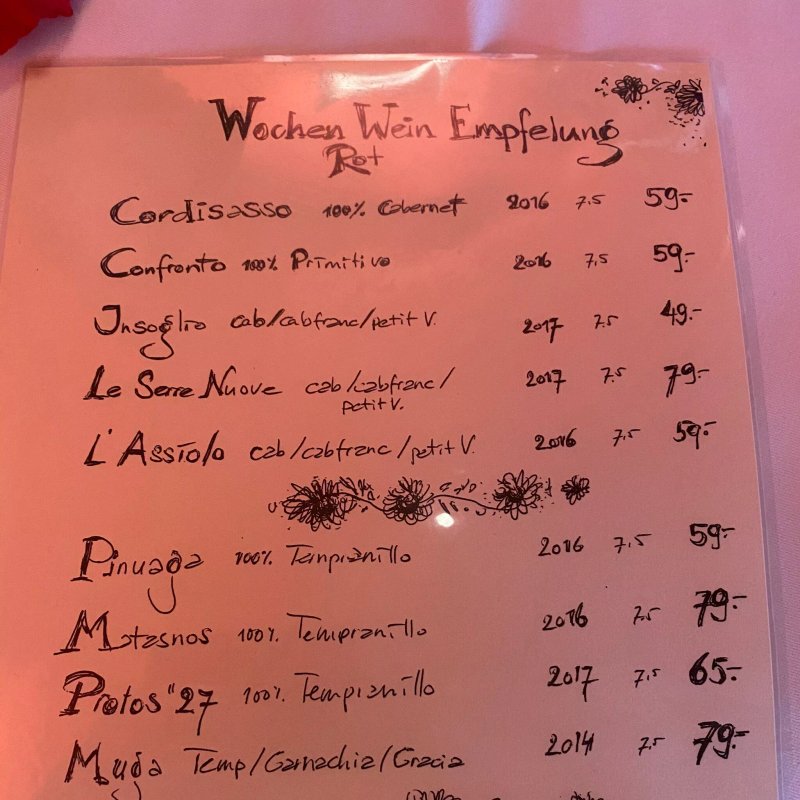 Wochen Wein Empfelung
Rot
Cordisasso 100% Cabernet 2016 7.5 59.-
Confronto 100% Primitivo 2016 7.5 59.-
Insoglio cab/cabfranc/petit V. 2017 7.5 49.-
Le Serre Nuove cab/cabfranc/ 2017 7.5 79.-
petit V.
L'Assiolo cab/cabfranc/petit V. 2016 7.5 59.-
Pinuaga 100% Tempranillo 2016 7.5 59.-
Matasnos 100% Tempranillo 2016 7.5 79.-
Protos "27 100% Tempranillo 2017 7.5 65.-
Muga Temp/Garnachia/Gracia 2014 7.5 79.-